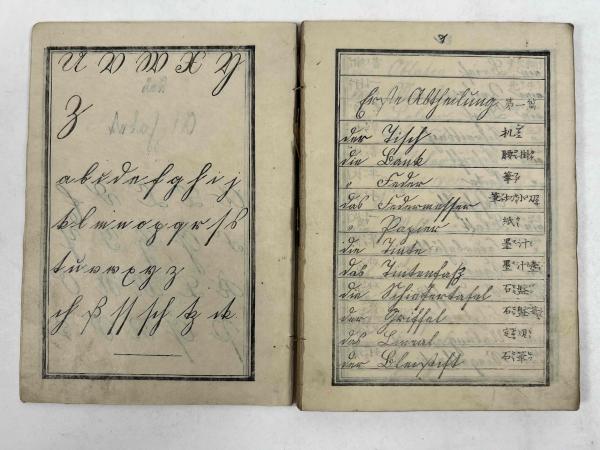 U V W X Y
Z
a b c d e f g h i j
k l m n o p q r s ß
t u v w x y z
ch ß ſſ ſch tz ck
Erste Abtheilung 第一篇
der Tisch 机
die Bank 腰掛
" Feder 筆
das Federmesser
" Papier 紙
die Tinte 墨汁
das Tintenfaß 墨汁壺
die Schiefertafel 石盤
der Griffel 石盤筆
das Lineal 定規
der Bleistift 石筆